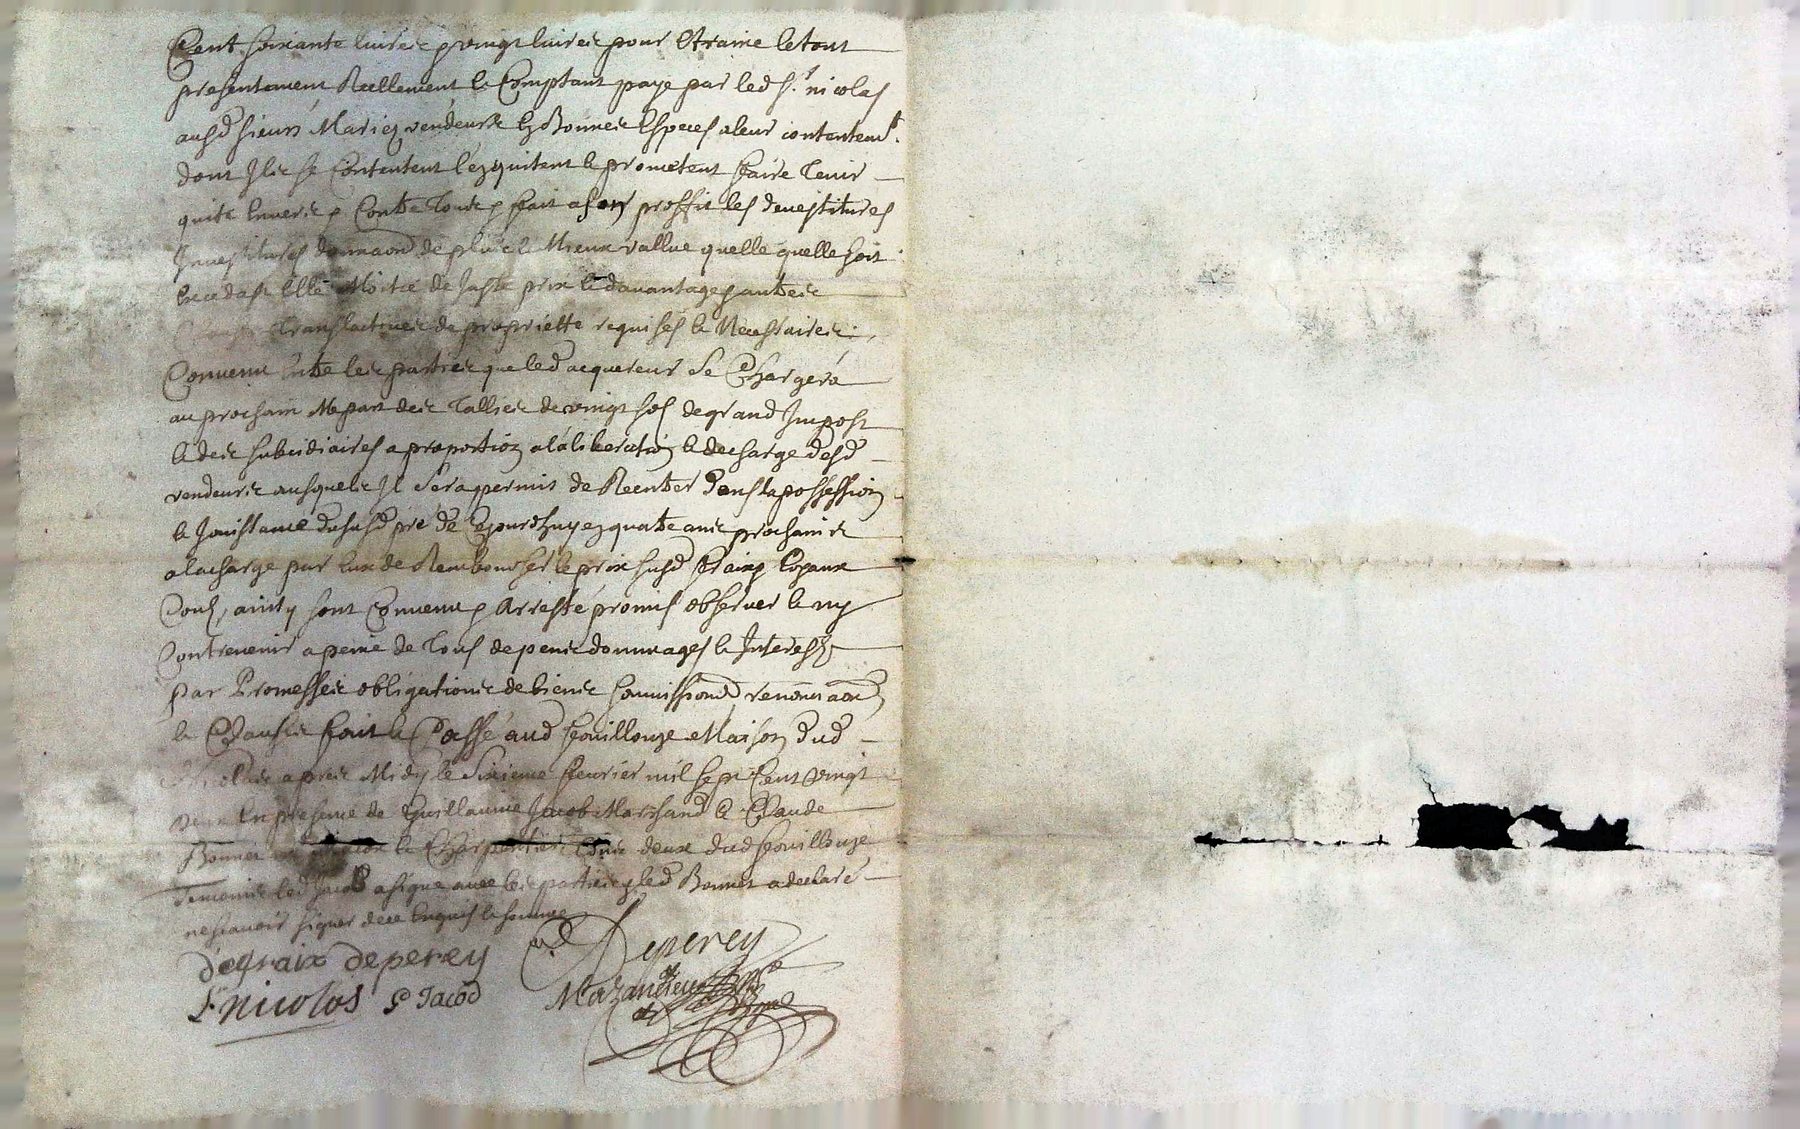 Cent soixante livres & vingt livres pour Etraine le tout
presentement Reellement & Comptant paye par led Sr. nicolas
ausd sieurs Mariez vendeurs en Bonnes Especes a leur contentemt.
dont Ils se Contentent l'en quitent & prometent faire Tenir
quite Envers & Contre Tous & fait a son proffit les devestitures
Investitures de plus & Mieux vallue quelle quelle soit
Exceda st Elle Moitie de Juste prix & davantage & autres
Clauses Translatives de propriette requises & Necessaires.
Convenu Entre les parties que led acquereur Se Chargera
au prochain Depart des Tallies de vingt sols de grand Impost
& des subcidiaires a proportion a la liberation & decharge desd
vendeurs ausquels Il Sera permis de Rentrer Dans la possession
& Jouissance dususd pré de Cejourdhuy en quatre ans prochains
a la charge par Eux de Rembourser le prix susd fraix & Loyaux
Couts, ainsy sont Convenu & Arresté promis observer & ny
Contrevenir a peine de Tous depens dommages & Interests
par Promesses obligations de biens soumissions renonciaons
& Clauses fait & Passé aud feouillouze Maison dud
Nicolas apres Midy le Sixieme feuvrier mil sept Cent vingt
deux En presence de Guillaume Jacob Marchand & Claude
Bonnet & Charpentier Tous deux dud feouillouze
Temoins led Jacob a signe avec les parties & led Bonnet a declaré
ne scavoir signer de ce Enquis & somme
degraix deperey deperey
Sr nicolas G Jacod Mazandieu